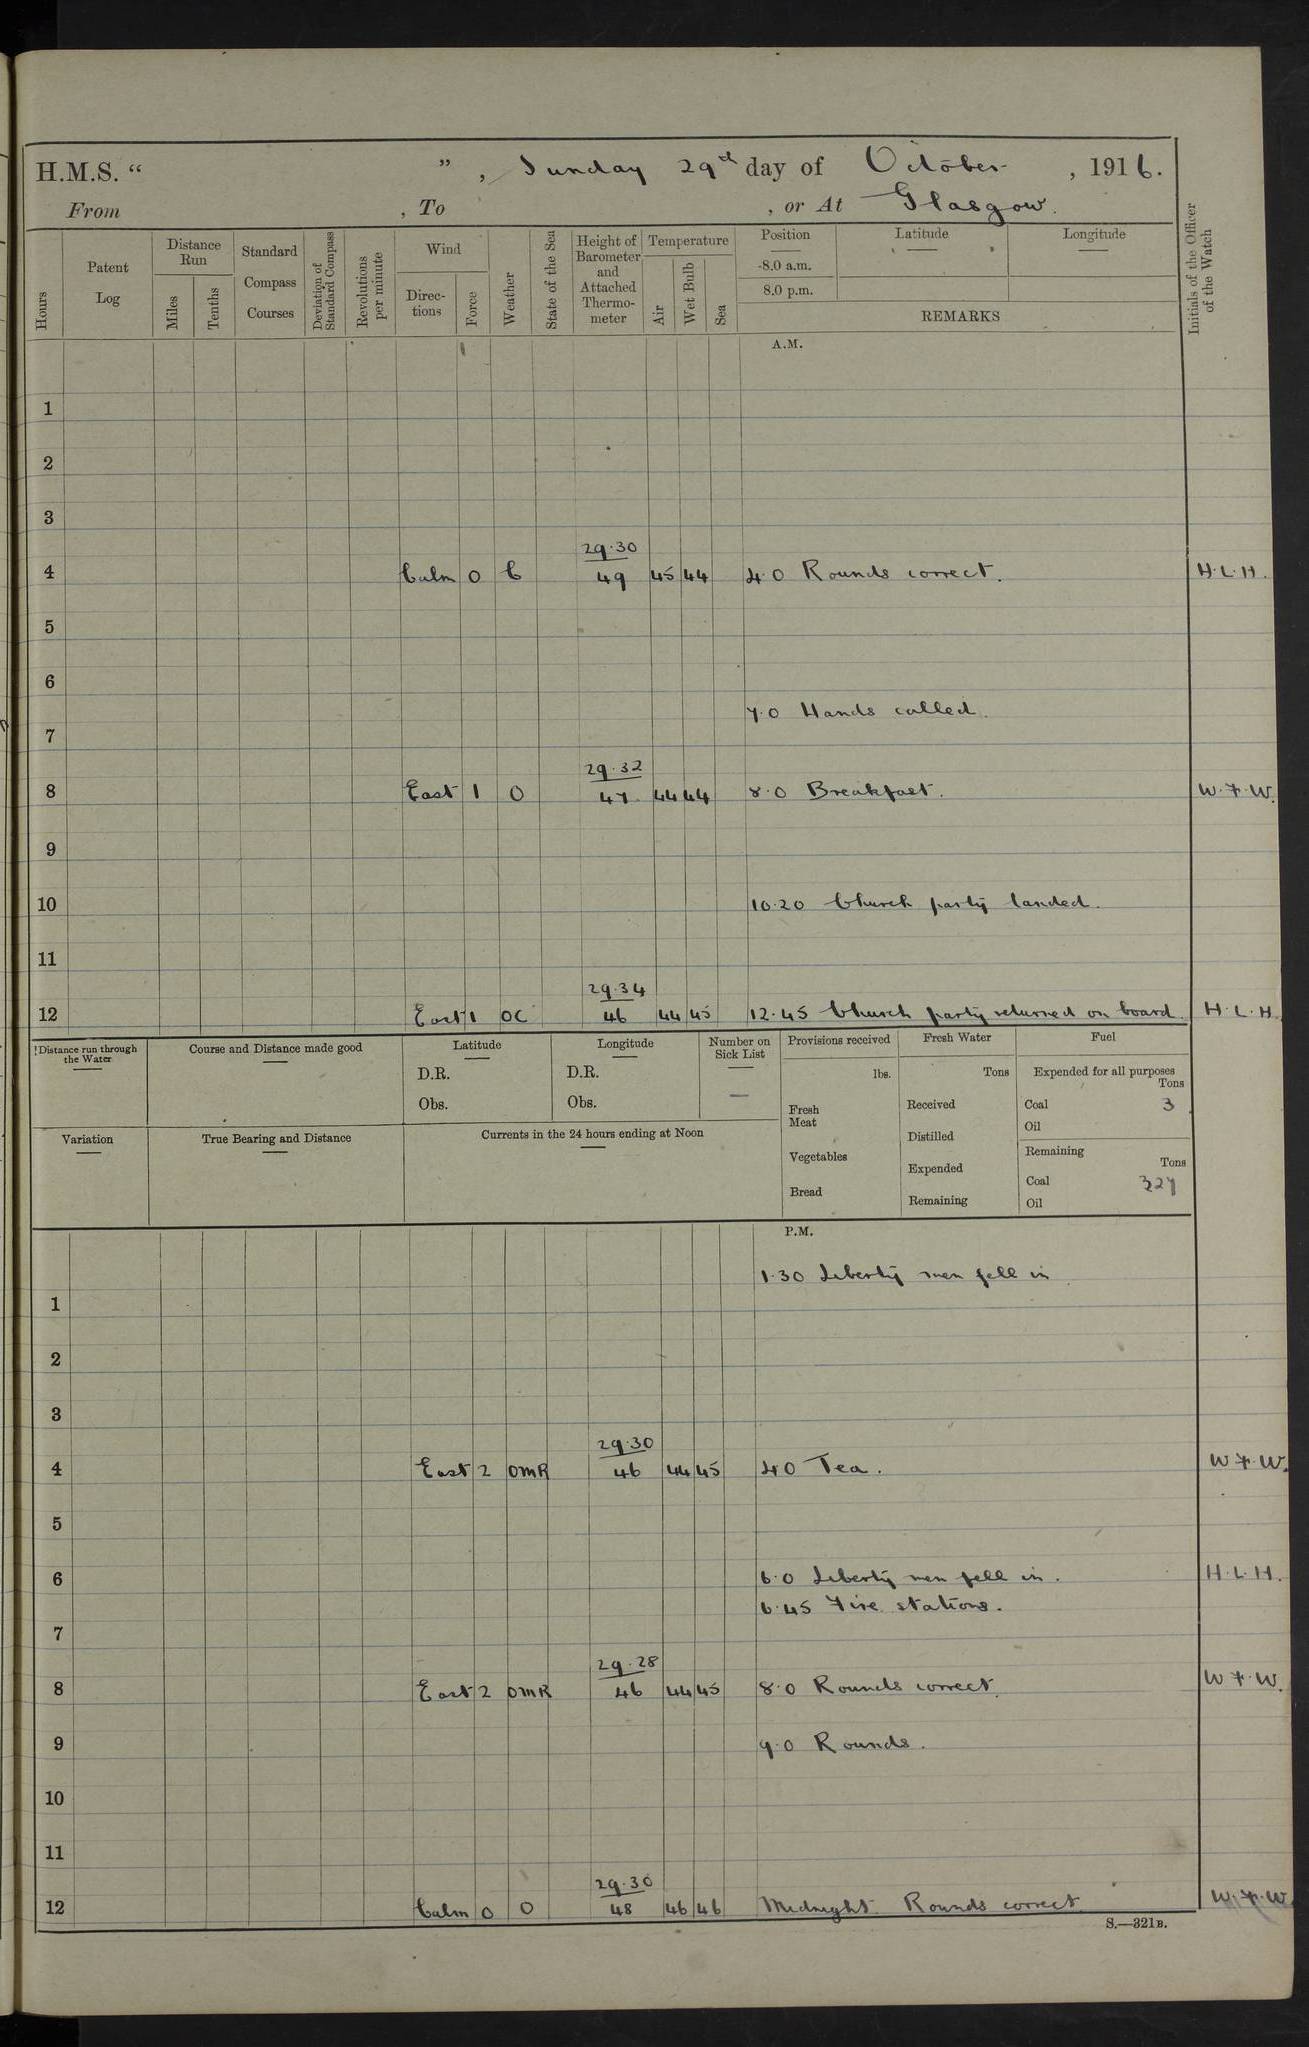 H.M.S. “ ”, Sunday 29th day of October, 1916.
From , To , or At Glasgow.
Hours
Patent Log
Distance Run
Miles
Tenths
Standard Compass Courses
Deviation of Standard Compass
Revolutions per minute
Wind
Direc-tions
Force
Weather
State of the Sea
Height of Barometer and Attached Thermo-meter
Temperature
Air
Wet Bulb
Sea
Position
8.0 a.m.
8.0 p.m.
Latitude
Longitude
REMARKS
Initials of the Officer of the Watch
A.M.
1
2
3
29.30
4 Calm 0 C 49 45 44 4.0 Rounds correct. H.L.H.
5
6
7.0 Hands called.
7
29.32
8 East 1 O 47 44 44 8.0 Breakfast. W.F.W.
9
10 10.20 Church party landed.
11
29.34
12 East 1 OC 46 44 45 12.45 Church party returned on board. H.L.H
Distance run through the Water
Course and Distance made good
Latitude
D.R.
Obs.
Longitude
D.R.
Obs.
Number on Sick List
—
Provisions received
lbs.
Fresh Meat
Vegetables
Bread
Fresh Water
Tons
Received
Distilled
Expended
Remaining
Fuel
Expended for all purposes
Tons
Coal 3
Oil
Remaining
Tons
Coal 327
Oil
Variation
True Bearing and Distance
Currents in the 24 hours ending at Noon
P.M.
1.30 Liberty men fell in
1
2
3
29.30
4 East 2 OMR 46 44 45 4.0 Tea. W.F.W.
5
6 6.0 Liberty men fell in. H.L.H.
6.45 Fire stations.
7
29.28
8 East 2 OMR 46 44 45 8.0 Rounds correct. W.F.W.
9 9.0 Rounds.
10
11
29.30
12 Calm 0 O 48 46 46 Midnight Rounds correct. W.F.W.
S.—321B.